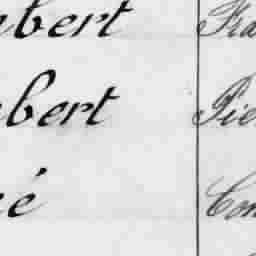 bert Fra
bert Pie
é Con